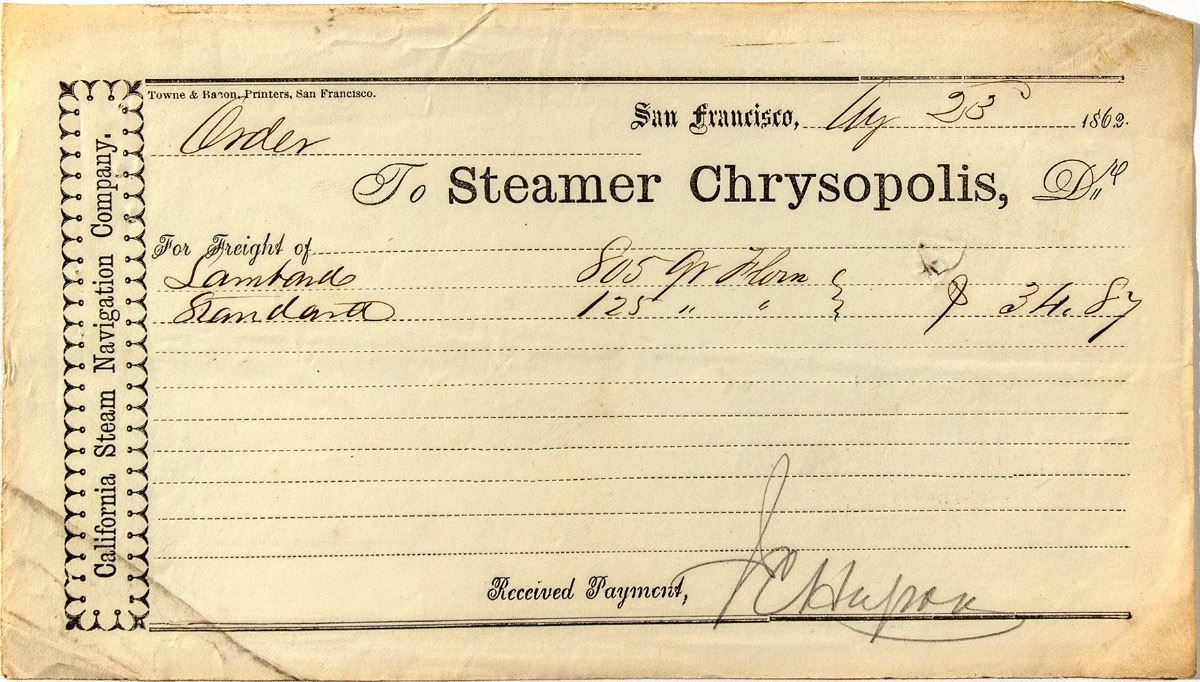 California Steam Navigation Company.
Towne & Bacon, Printers, San Francisco.
San Francisco, Aug 25 1862.
Order
To Steamer Chrysopolis, Dr
For Freight of
Lambard 805 qr
Standard 125 " " $ 34.87
Received Payment,